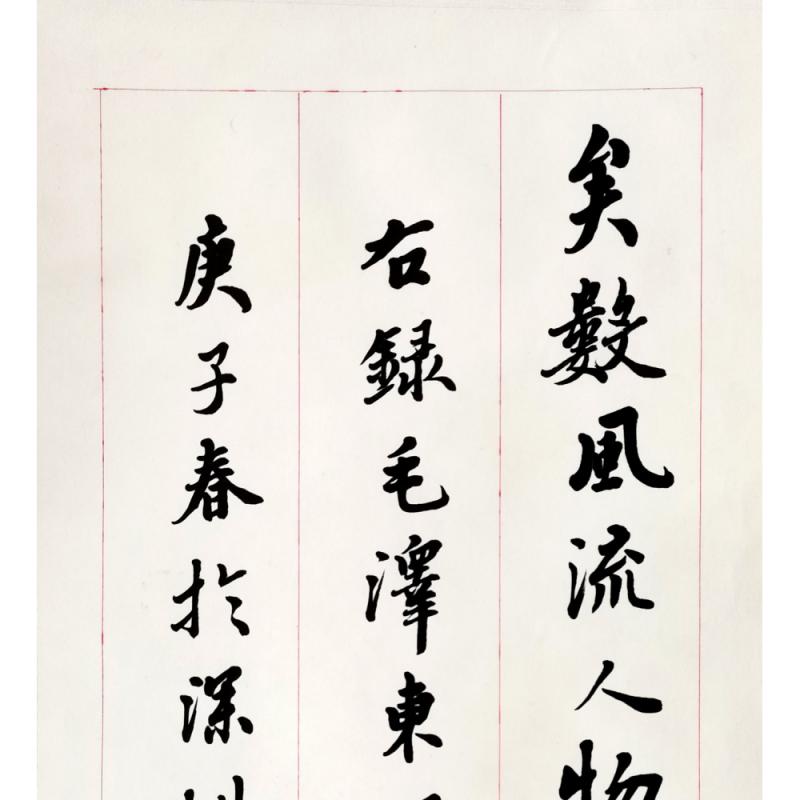 矣數風流人物
右録毛澤東
庚子春於深